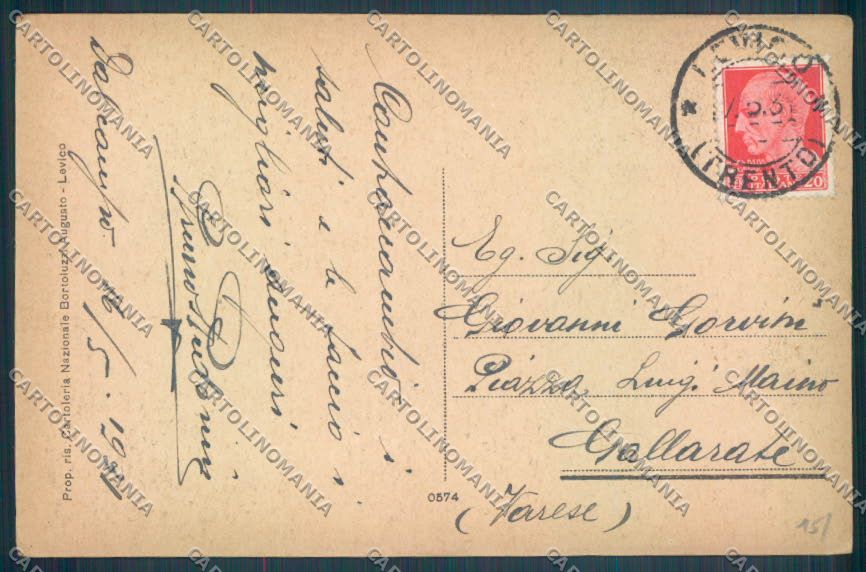 Contraccambio i
saluti e le faccio i
migliori auguri
Bruno
16/5-1931
Prop. ris. Cartoleria Nazionale Bortoluzzi Augusto - Levico
0574
LEVICO
(TRENTO)
20
Eg. Sig.
Giovanni Gorvini
Piazza Luigi Maino
Gallarate
(Varese)
15/
CARTOLINOMANIA